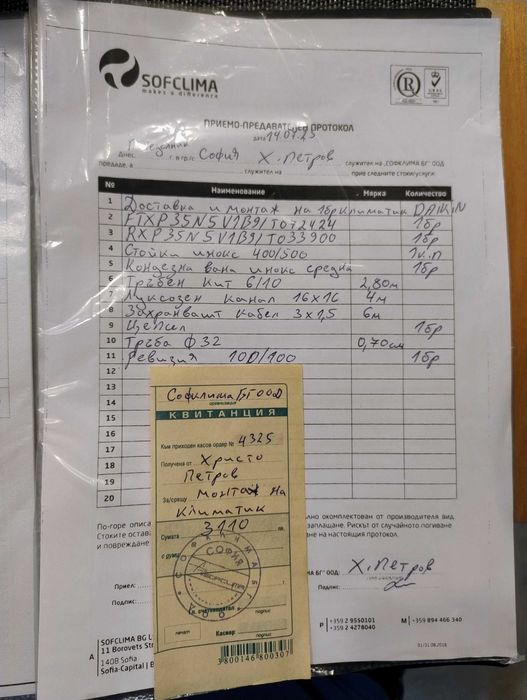 SOFCLIMA
makes a difference
ПРИЕМО-ПРЕДАВАТЕЛЕН ПРОТОКОЛ
дата 14.07.25
Днес, Понеделник г. в гр/с София Х. Петров служител на „СОФКЛИМА БГ" ООД
предаде, а служител на прие следните стоки/услуги:
№ Наименование Мярка Количество
1 Доставка и монтаж на 1бр климатик DAIKIN
2 FTXP35N5V1B9/T072424 1бр
3 RXP35N5V1B9/T033900 1бр
4 Стойки инокс 400/500 1к.п
5 Кондезна вана инокс средна 1бр
6 Тръбен кит 6/10 2,80м
7 Луксозен канал 16x16 4м
8 Захранващт кабел 3x1,5 6м
9 Щепсел 1бр
10 Тръба Ф32 0,70см
11 Ревизия 100/100 1бр
12
13
14
15
16
17
18
19
20
Софклима БГ ООД
КВИТАНЦИЯ
Към приходен касов ордер № 4325
Получена от Христо
Петров
За/срещу монтаж на
Климатик
Сумата 3110 лв.
с думи
СОФКЛИМА БГ ООД
СОФИЯ
SOFCLIMA
Гл. счетоводител
подпис
печат
Касиер
подпис
3800146800307
По-горе описа
но окомплектован от производителя вид
Стоките остава
заплащане. Рискът от случайното погиване
и повреждане
на настоящия протокол.
БГ" ООД: Х. Петров
Приел:
Подпис:
Подпис:
SOFCLIMA BG
A 11 Borovets St
1408 Sofia
Sofia-Capital | B
P | +359 2 9550101
+359 2 4278040
M | +359 894 466 340
01/31.08.2018